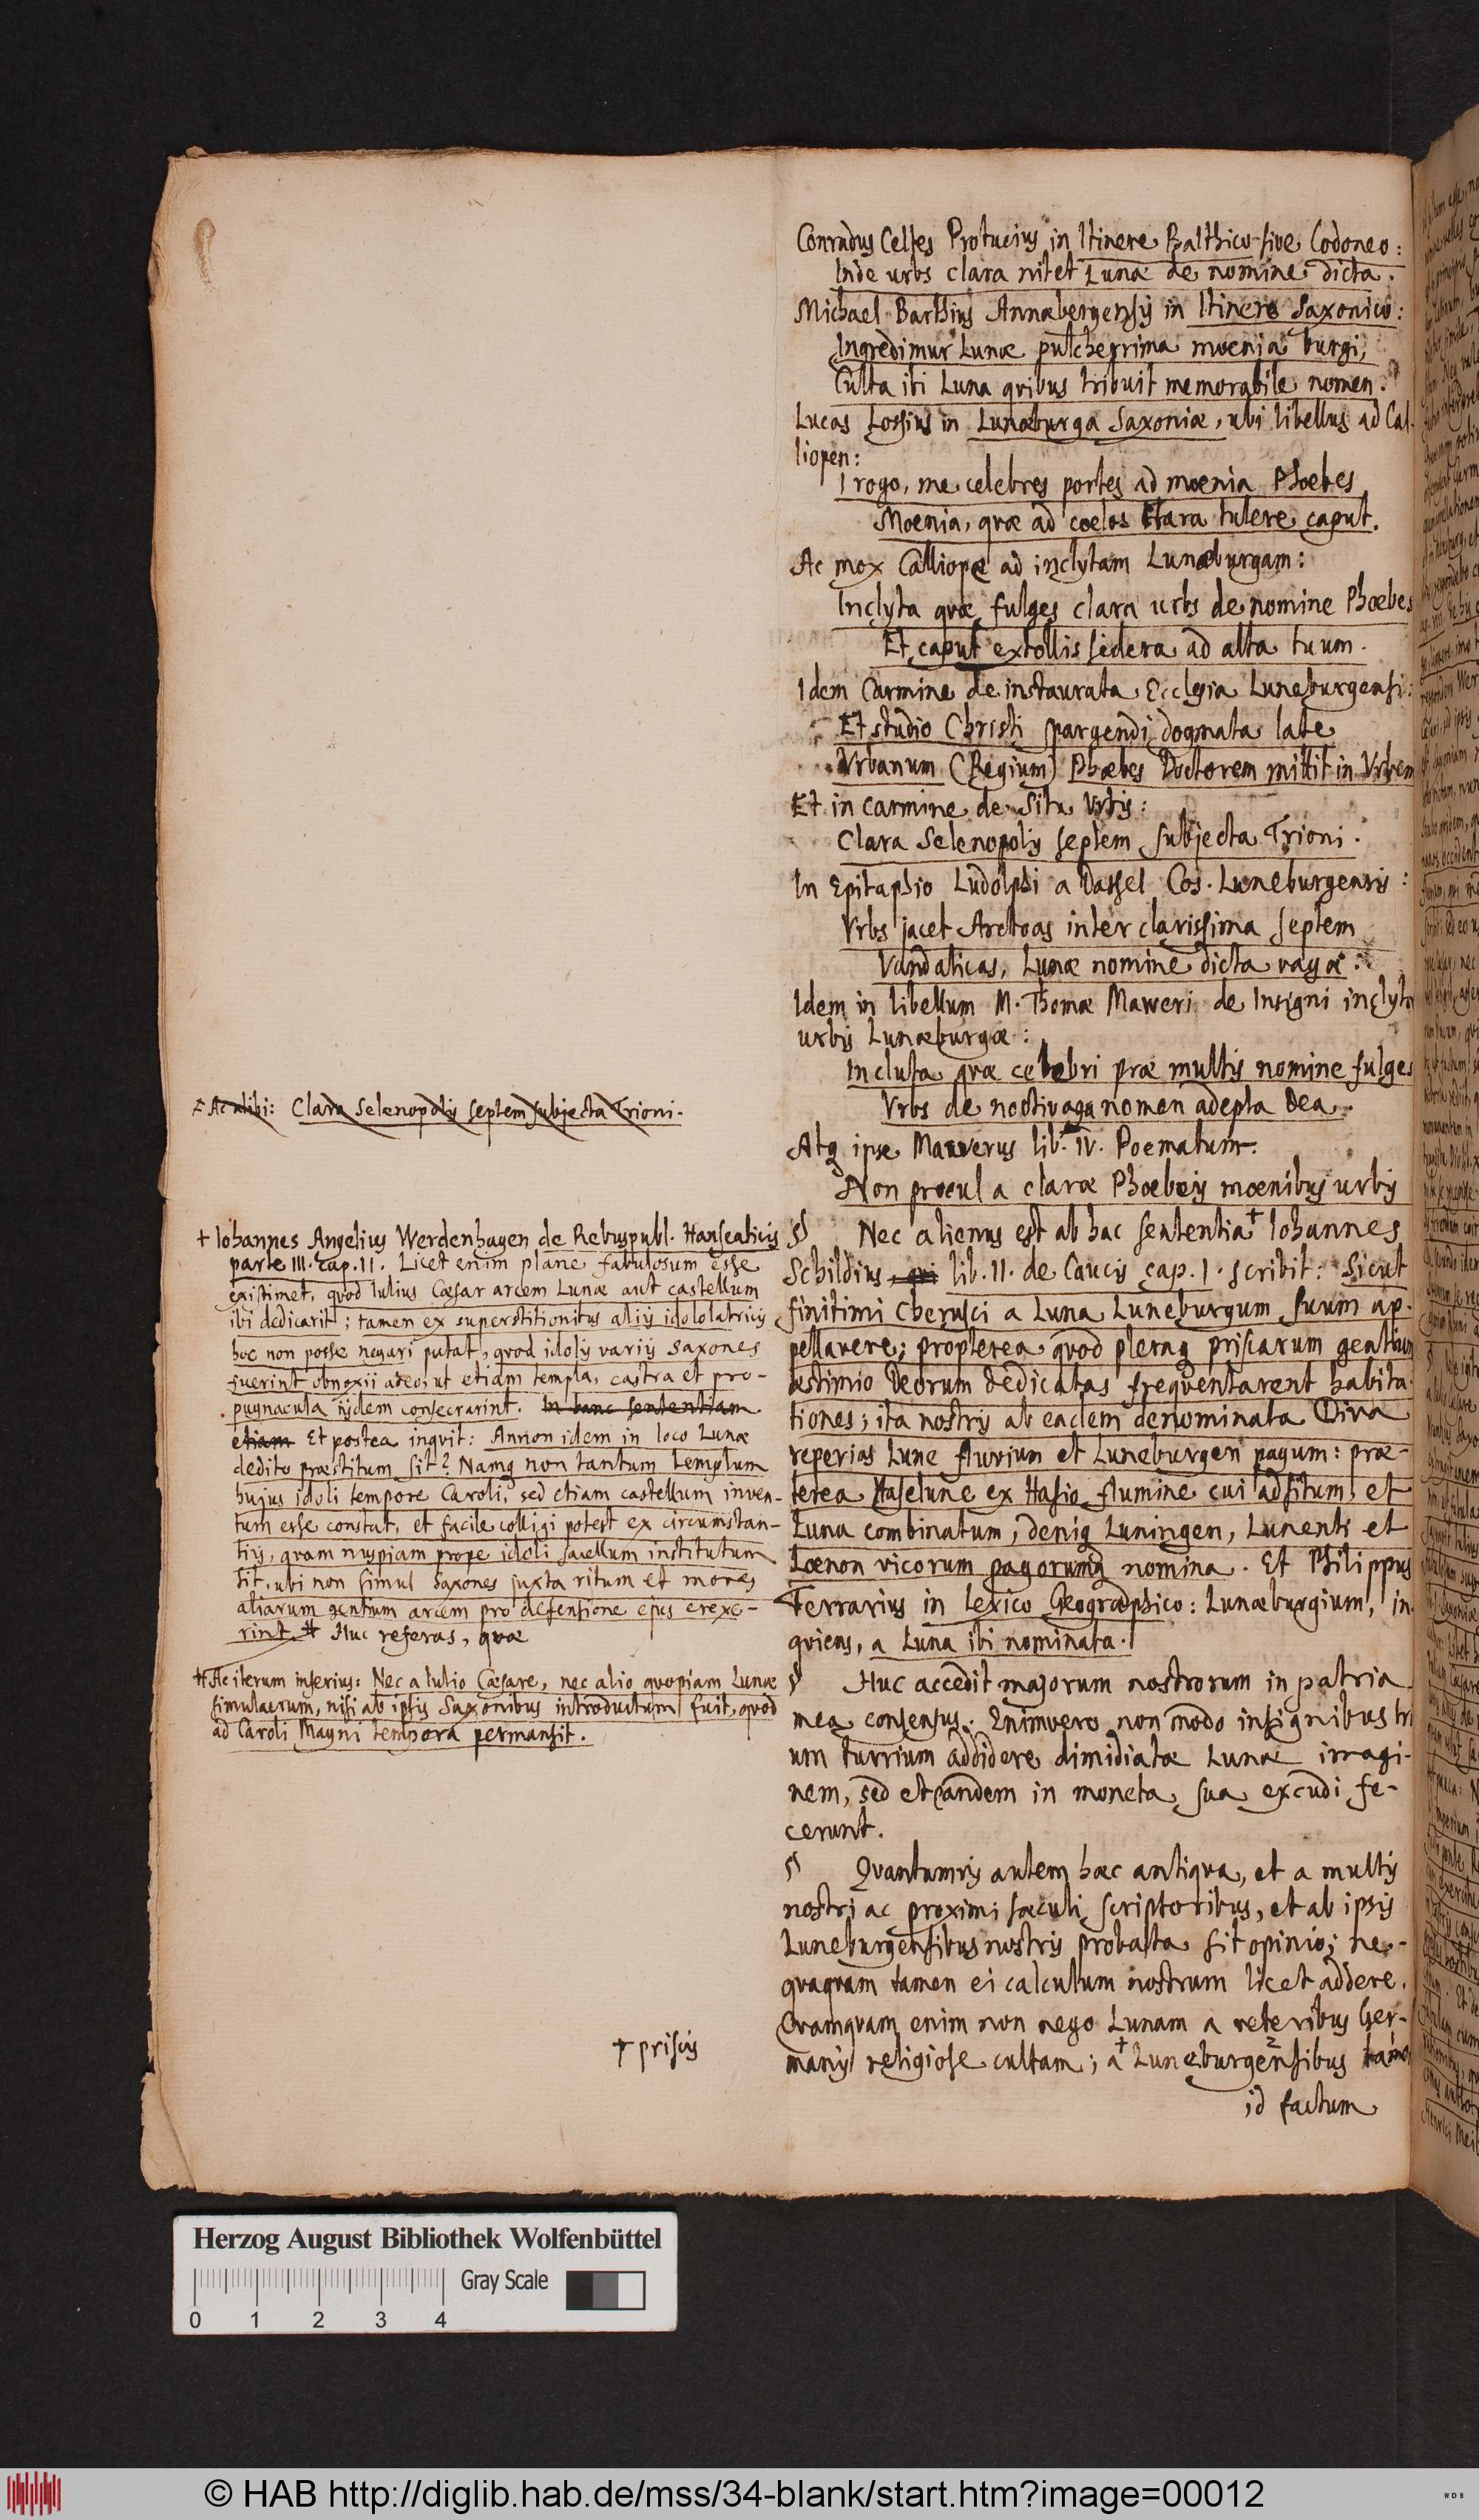 Conradus Celtes Protucius in Itinere Balthico sive Codoneo:
Inde urbs clara nitet Lunæ de nomine dicta.
Michael Barthius Annæbergensis in Itinere Saxonico:
Ingredimur Lunæ pulcherrima mœnia burgi,
Culta ibi Luna qvibus tribuit memorabile nomen.
Lucas Lossius in Lunæburga Saxoniæ, ubi libellus ad Cal-
liopen:
I rogo, me celebres portes ad mœnia Phœbes
Moenia, qvæ ad coelos clara tulere caput.
Ac mox Calliope ad inclytam Lunæburgam:
Inclyta qvæ fulges clara urbs de nomine Phœbes
Et caput extollis sidera ad alta tuum.
Idem Carmine de instaurata Ecclesia Luneburgensi:
Et studio Christi spargendi dogmata late
Vrbanum (Regium) Phœbes Doctorem mittit in Vrbem
Et in carmine de Situ Vrbis:
Clara Selenopolis septem subjecta Trioni.
In Epitaphio Ludolphi a Dassel Cos. Luneburgensis:
Vrbs jacet Arctoas inter clarissima septem
Vandalicas, Lunæ nomine dicta vagæ.
Idem in libellum M. Thomæ Maweri de Insigni inclytæ
urbis Lunæburgæ:
Incluta qvæ celebri præ multis nomine fulges
Vrbs de noctivaga nomen adepta Dea.
Atq ipse Mawerus lib. IV. Poematum.
Non procul a claræ Phœbeis mœnibus urbis
§ Nec alienus est ab hac sententia + Iohannes
Schildius, qvi lib. II. de Caucis cap. I. scribit: Sicut
finitimi Cherusci a Luna Luneburgum suum ap-
pellavere; propterea qvod pleraq priscarum gentium
æstimio Deorum dedicatas freqventarent habita-
tiones; ita nostris ab eadem denominata Diva
reperias Lune fluvium et Luneburgen pagum: præ-
terea Haselune ex Hasio flumine cui adsitum, et
Luna combinatum, deniq Luningen, Lunenti et
Lœnon vicorum pagorumq nomina. Et Philippus
Ferrarius in Lexico Geographico: Lunæburgium, in-
qviens, a Luna ibi nominata.
§ Huc accedit majorum nostrorum in patria
mea consensus. Enimvero non modo insignibus tri
um turrium addidere dimidiatæ Lunæ imagi-
nem, sed et eandem in moneta sua excudi fe-
cerunt.
§ Qvantumvis autem hæc antiqva, et a multis
nostri ac proximi sæculi scriptoribus, et ab ipsis
Luneburgensibus nostris probata sit opinio; ne-
qvaqvam tamen ei calculum nostrum licet addere.
Qvamqvam enim non nego Lunam a veteribus Ger-
manis religiose cultam; a + Luneburgensibus
id factum
+ Ac alibi: Clara Selenopolis septem subjecta Trioni.
+ Iohannes Angelius Werdenhagen de Rebuspubl. Hanseaticis
parte III. cap. II. Licet enim plane fabulosum esse
existimet, qvod Iulius Cæsar arcem Lunæ aut castellum
ibi dedicarit; tamen ex superstitionibus aliis idololatricis
hoc non posse negari putat, qvod idolis variis Saxones
fuerint obnoxii adeo, ut etiam templa, castra et pro-
pugnacula iisdem consecrarint. In hanc sententiam
etiam Et postea inqvit: Annon idem in loco Lunæ
dedito præstitum sit? Namq non tantum templum
hujus idoli tempore Caroli, sed etiam castellum inven-
tum esse constat, et facile colligi potest ex circumstan-
tiis, qvam nuspiam prope idoli sacellum institutum
sit, ubi non simul Saxones juxta ritum et mores
aliarum gentium arcem pro defensione ejus erexe-
rint. # Huc referas, qvæ
# Ac iterum inferius: Nec a Iulio Cæsare, nec alio qvopiam Lunæ
simulacrum, nisi ab ipsis Saxonibus introductum fuit, qvod
ad Caroli Magni tempora permansit.
+ priscis
Herzog August Bibliothek Wolfenbüttel
Gray Scale
0 1 2 3 4
© HAB http://diglib.hab.de/mss/34-blank/start.htm?image=00012
WDB